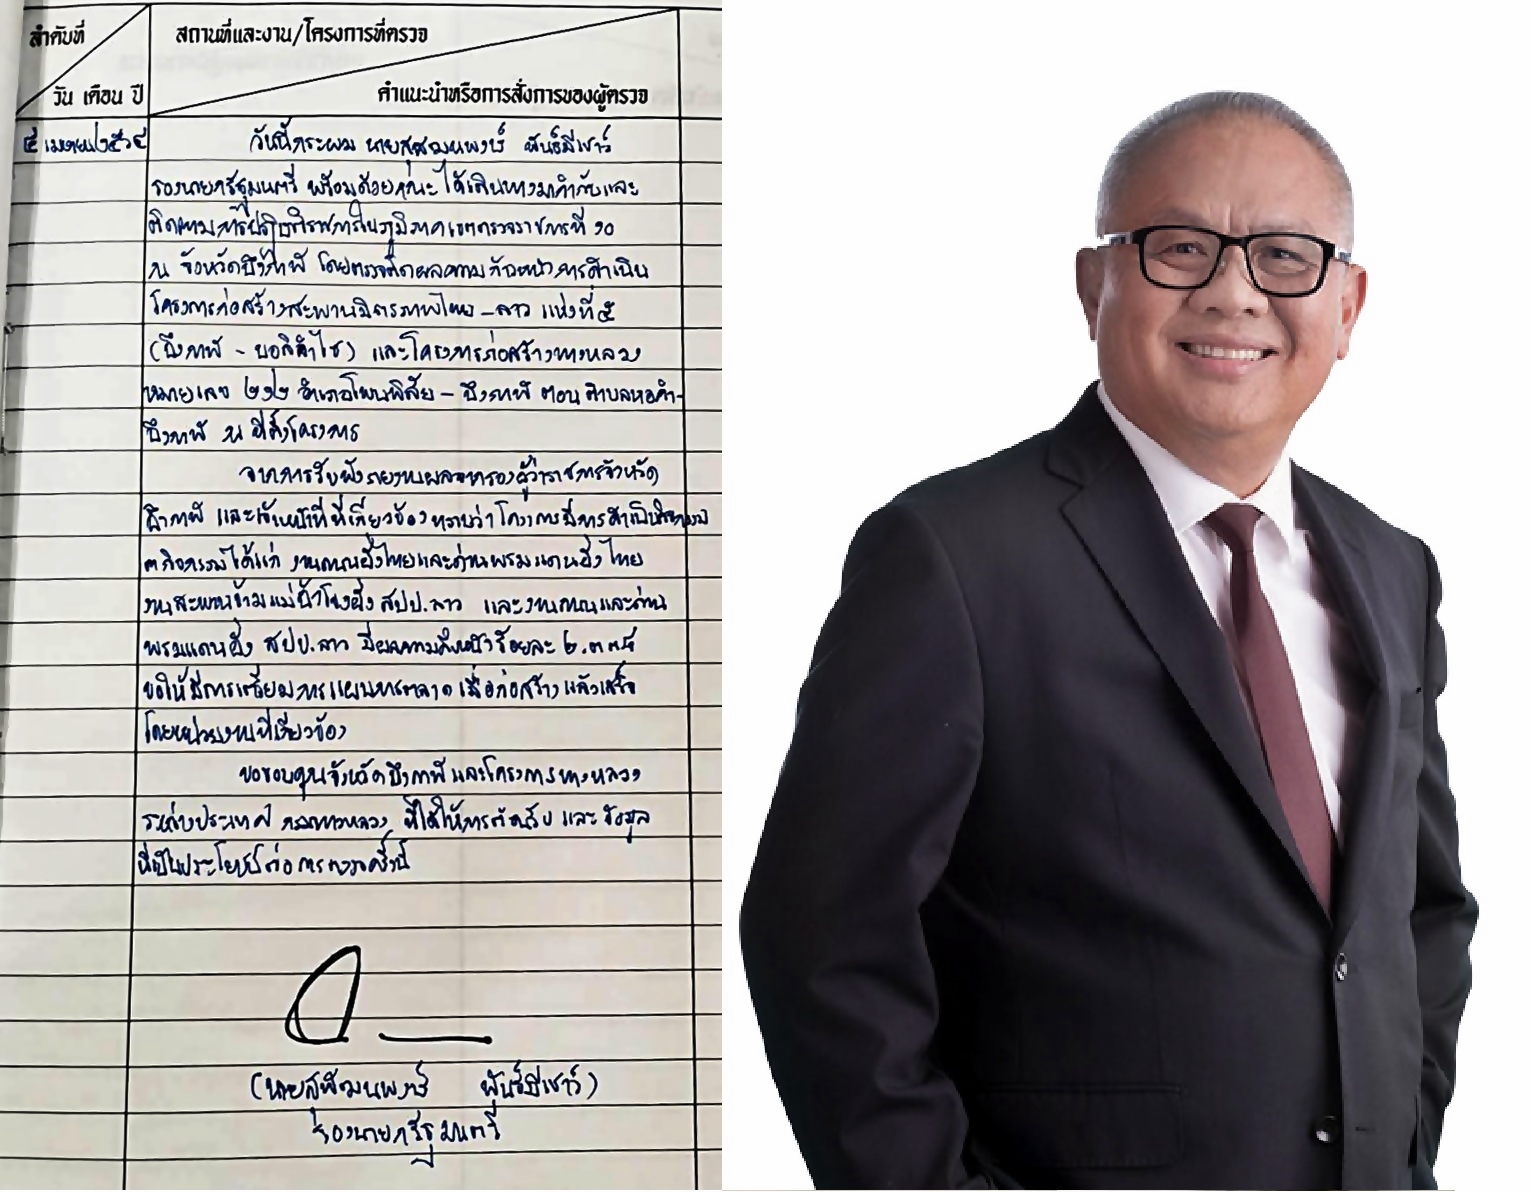 ลำดับที่
สถานที่และงาน/โครงการที่ตรวจ
วัน เดือน ปี
คำแนะนำหรือการสั่งการของผู้ตรวจ
๕ เมษายน ๒๕๖๕
วันนี้กระผม นายสุพัฒนพงษ์ พันธ์มีเชาว์
รองนายกรัฐมนตรี พร้อมด้วยคณะ ได้เดินทางมากำกับและ
ติดตามการปฏิบัติราชการในภูมิภาค เขตตรวจราชการที่ ๑๐
ณ จังหวัดบึงกาฬ โดยตรวจติดตามความก้าวหน้าการดำเนิน
โครงการก่อสร้างสะพานมิตรภาพไทย – ลาว แห่งที่ ๕
(บึงกาฬ – บอลิคำไซ) และโครงการก่อสร้างทางหลวง
หมายเลข ๒๑๒ อำเภอโพนพิสัย – บึงกาฬ ตอน ตำบลหอคำ-
บึงกาฬ ณ ที่ตั้งโครงการ
จากการรับฟังรายงานผลจากรองผู้ว่าราชการจังหวัด
บึงกาฬ และเจ้าหน้าที่ที่เกี่ยวข้อง ทราบว่า โครงการมีการดำเนินกิจกรรม
๓ กิจกรรม ได้แก่ งานถนนฝั่งไทยและด่านพรมแดนฝั่งไทย
งานสะพานข้ามแม่น้ำโขงฝั่ง สปป.ลาว และงานถนนและด่าน
พรมแดนฝั่ง สปป.ลาว มีผลความคืบหน้าร้อยละ
ขอให้มีการเตรียมการแผนการตลาด เมื่อก่อสร้างแล้วเสร็จ
โดยหน่วยงานที่เกี่ยวข้อง
ขอขอบคุณจังหวัดบึงกาฬ และโครงการทางหลวง
ระหว่างประเทศ กรมทางหลวง ที่ได้ให้การต้อนรับ และข้อมูล
ที่เป็นประโยชน์ต่อการตรวจครั้งนี้
(นายสุพัฒนพงษ์ พันธ์มีเชาว์)
รองนายกรัฐมนตรี